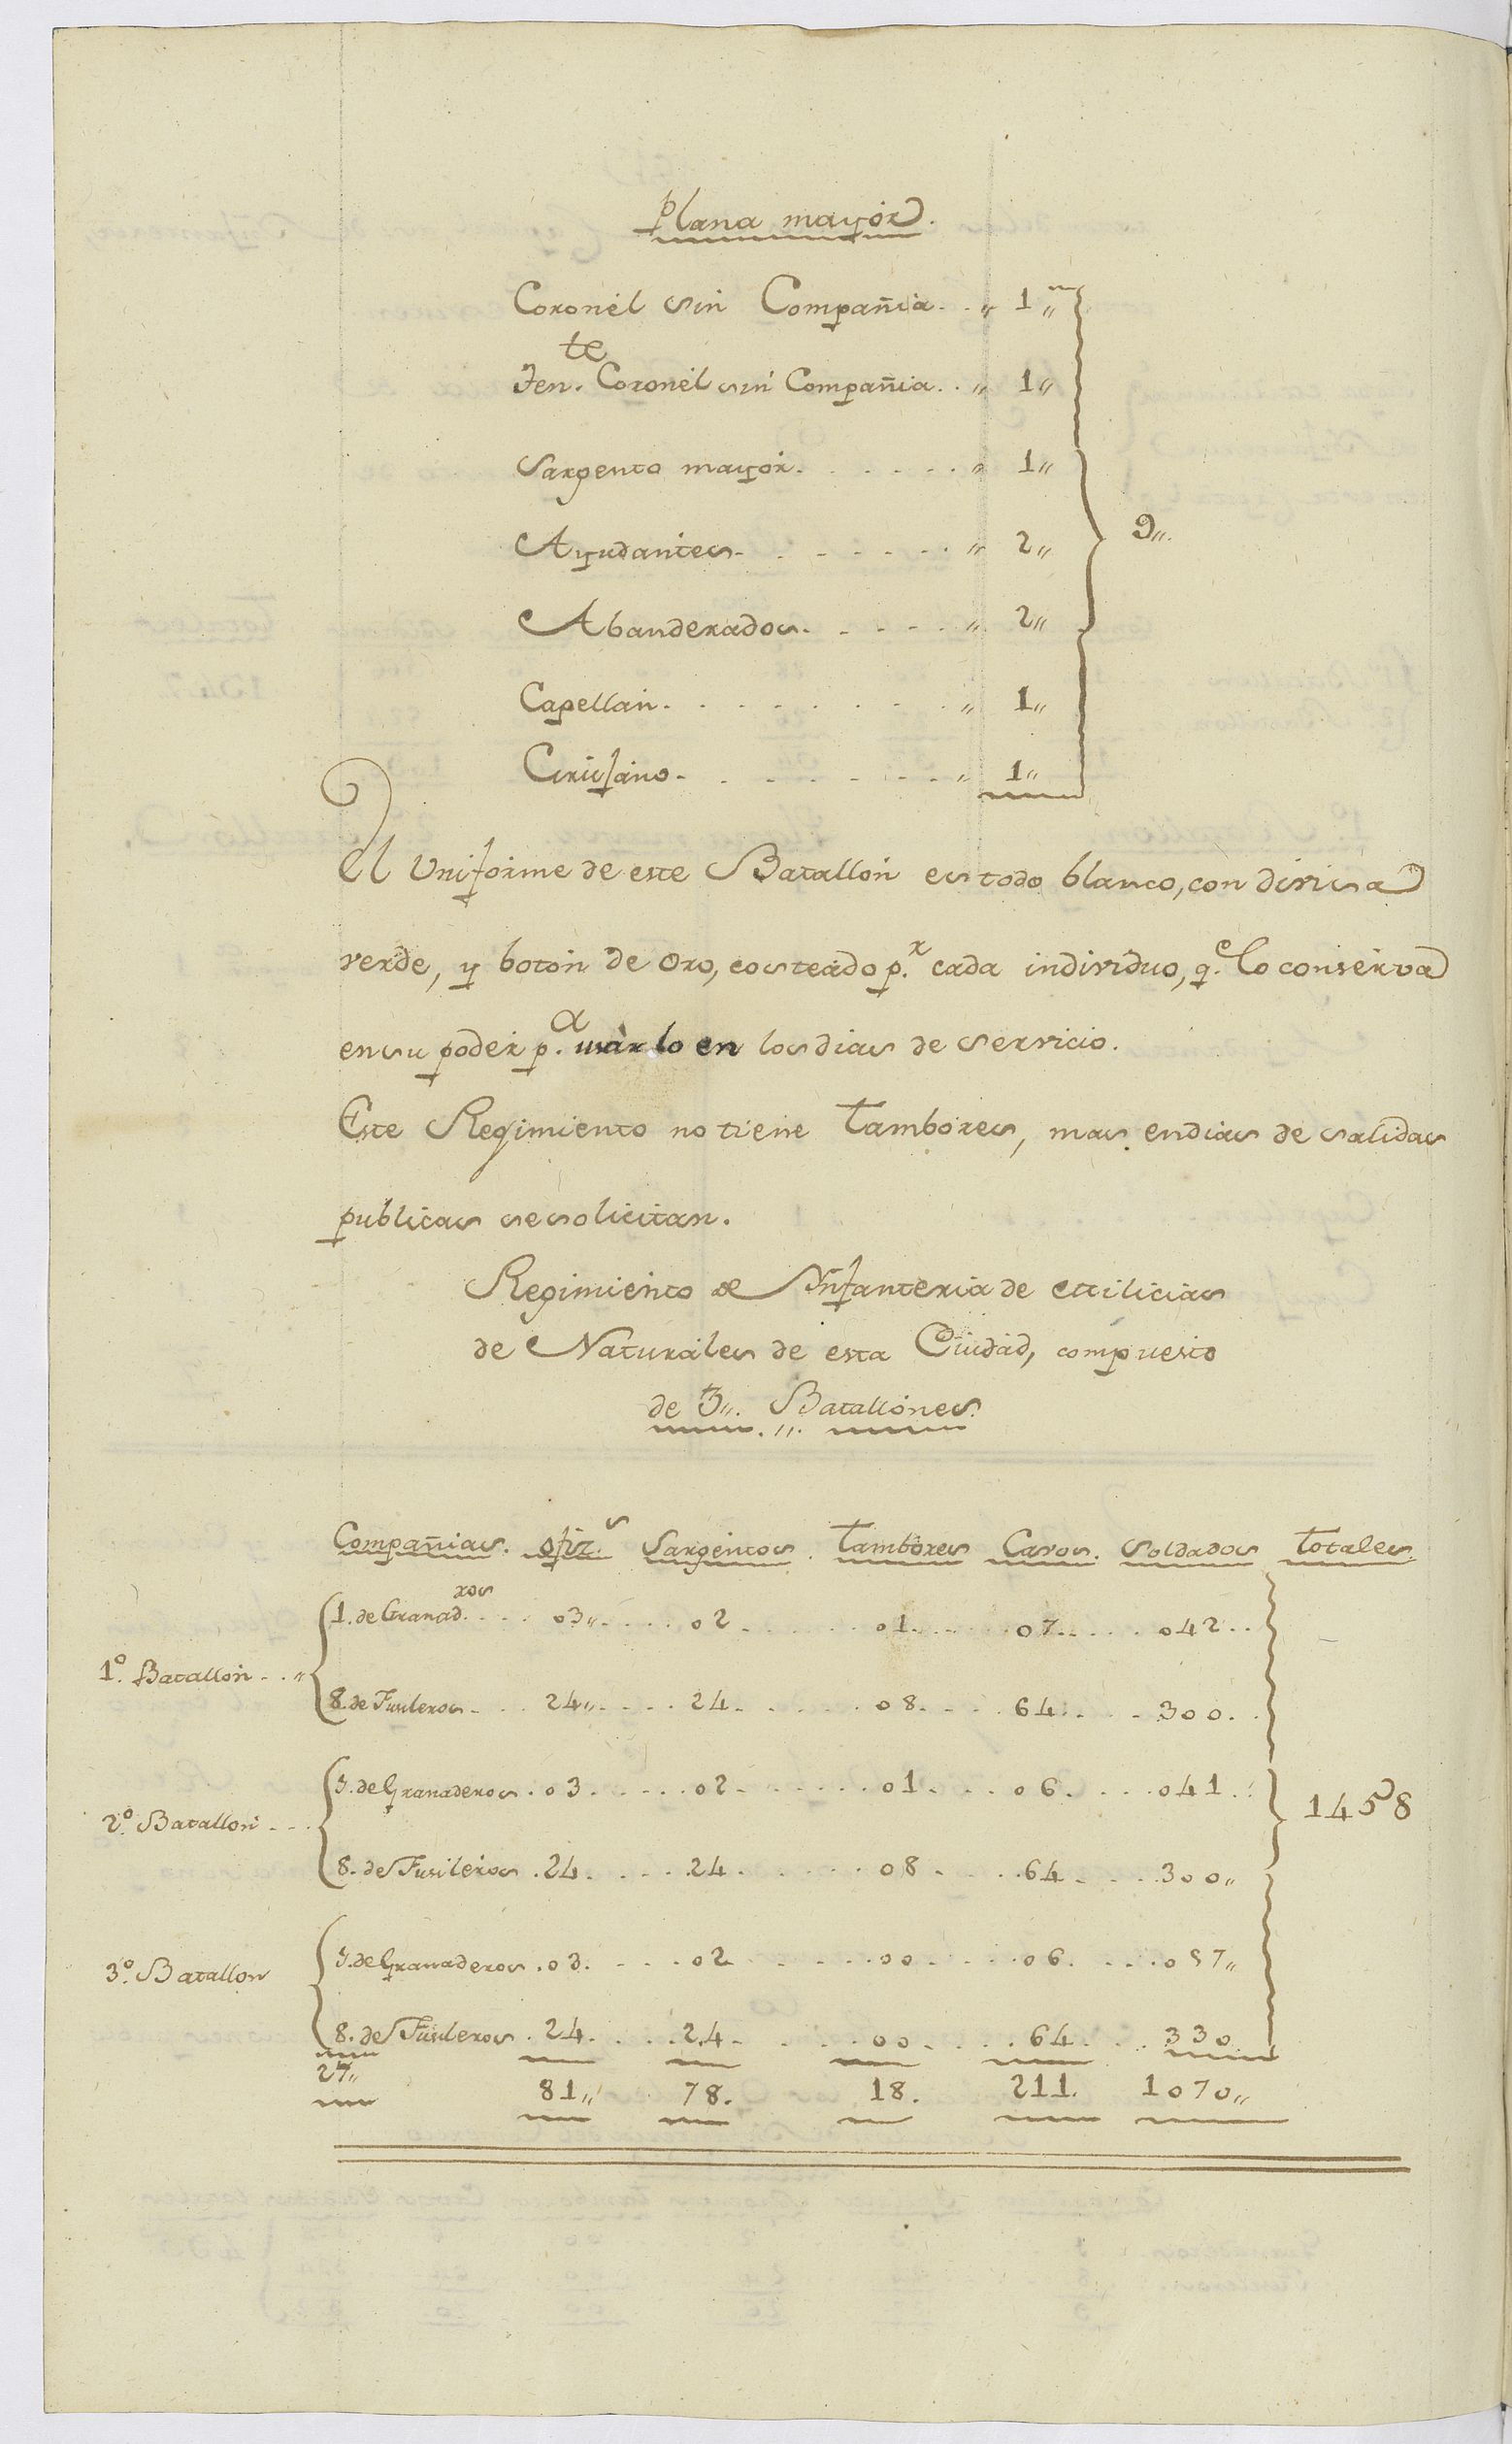 Plana mayor.
Coronel sin Compañia. . „ 1„
Ten.te Coronel sin Compañia. . „ 1„
Sargento mayor. . . . . . „ 1„
Ayudantes. . . . . . . „ 2„
9„.
Abanderados. . . . . . „ 2„
Capellan. . . . . . . . „ 1„
Cirujano. . . . . . . . „ 1„
El Uniforme de este Batallon es todo blanco, con divisa
verde, y boton de Oro, costeado p.r cada individuo, q.e lo conserva
en su poder p.a usarlo en los dias de servicio.
Este Regimiento no tiene Tambores, mas en dias de salidas
publicas se solicitan.
Regimiento de Infanteria de Milicias
de Naturales de esta Ciudad, compuesto
de 3„. Batallones.
Compañias. Ofiz.s Sargentos. Tambores Cavos. Soldados Totales.
1. de Granad.ros . . . 03„. . . . 02 . . . . . 01. . . . . 07. . . . . 042. .
1.o Batallon . . „
8. de Fusileros. . . 24„. . . . 24. . . . . . 08. . . . 64. . . . 300. .
1. de Granaderos. 03. . . . . 02. . . . . . 01. . . . 06. . . . 041. .
2.o Batallon. . . 1458
8. de Fusileros. 24. . . . . 24. . . . . . 08. . . . 64. . . . 300„
1. de Granaderos. 03. . . . . 02 . . . . . 00. . . . 06. . . . 057„
3.o Batallon
8. de Fusileros. 24. . . . . 24. . . . . . 00. . . . 64. . . . 330
27„ 81„ 78. 18. 211. 1070„